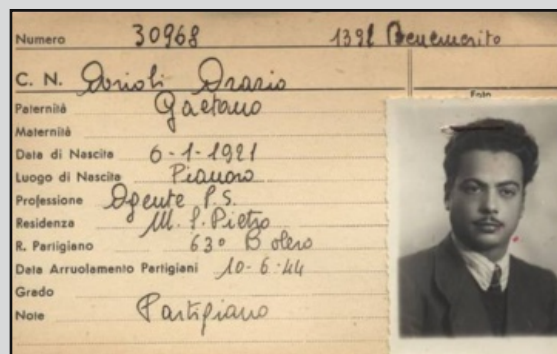 Numero 30968 1392 Benemerito
C. N. Dorioli Orazio
Foto
Paternità Gaetano
Maternità
Data di Nascita 6-1-1921
Luogo di Nascita Pianoro
Professione Agente P.S.
Residenza M. S. Pietro
R. Partigiano 63° Bolero
Data Arruolamento Partigiani 10-6-44
Grado
Note Partigiano